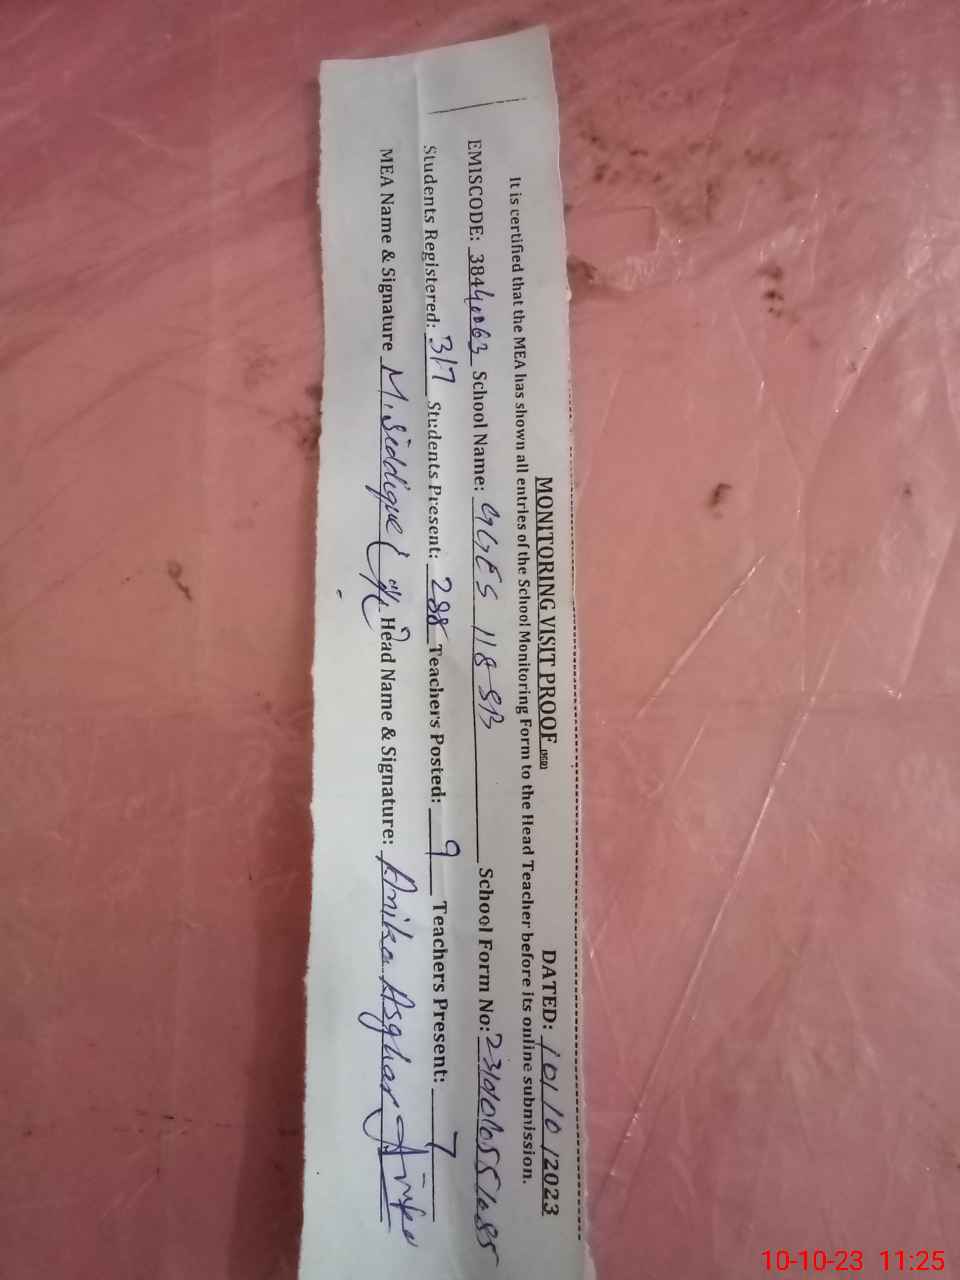 MONITORING VISIT PROOF (MSD) DATED: 10/10/2023
It is certified that the MEA has shown all entries of the School Monitoring Form to the Head Teacher before its online submission.
EMISCODE: 38440063 School Name: GGES 118 SB School Form No:
Students Registered: 317 Students Present: 288 Teachers Posted: 9 Teachers Present: 7
MEA Name & Signature M. Siddique Head Name & Signature: Anika Asghar Anika
10-10-23 11:25